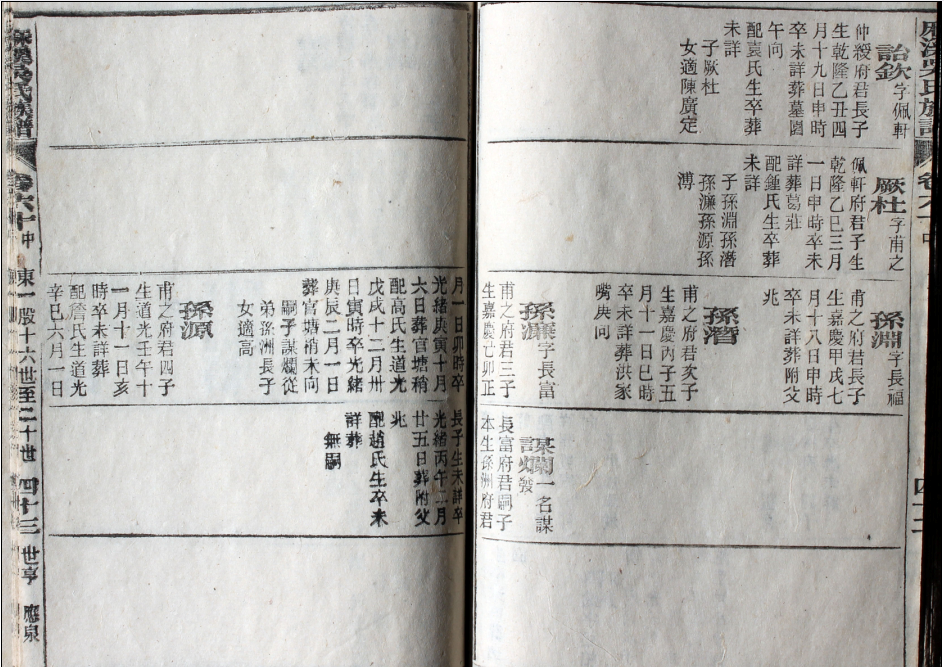 詒欽字佩軒
仲綬府君長子
生乾隆乙丑四
月十九日申時
卒未詳葬墓園
午向
配袁氏生卒葬
未詳
子厥杜
女適陳廣定
厥杜字甫之
佩軒府君子生
乾隆乙巳三月
一日申時卒未
詳葬葛莊
配鍾氏生卒葬
未詳
子孫淵孫潛
孫濂孫源孫
溥
孫淵字長福
甫之府君長子
生嘉慶甲戌七
月十八日申時
卒未詳葬附父
兆
孫潛
甫之府君次子
生嘉慶丙子五
月十一日巳時
卒未詳葬洪家
嘴庚向
孫濂字長富
甫之府君三子
生嘉慶己卯正
謀爛一名謀
發
長富府君嗣子
本生孫洲府君
月一日卯時卒
光緒庚寅十月
六日葬官塘稍
配高氏生道光
戊戌十二月卅
日寅時卒光緒
庚辰二月一日
葬官塘稍未向
嗣子謀爛從
弟孫洲長子
女適高
孫源
甫之府君四子
生道光壬午十
一月十一日亥
時卒未詳葬
配詹氏生道光
辛巳六月一日
長子生未詳卒
光緒丙午二月
廿五日葬附父
兆
配趙氏生卒未
詳葬
無嗣
卷六十中
東一股十六世至二十世
四十三
世亨
應泉